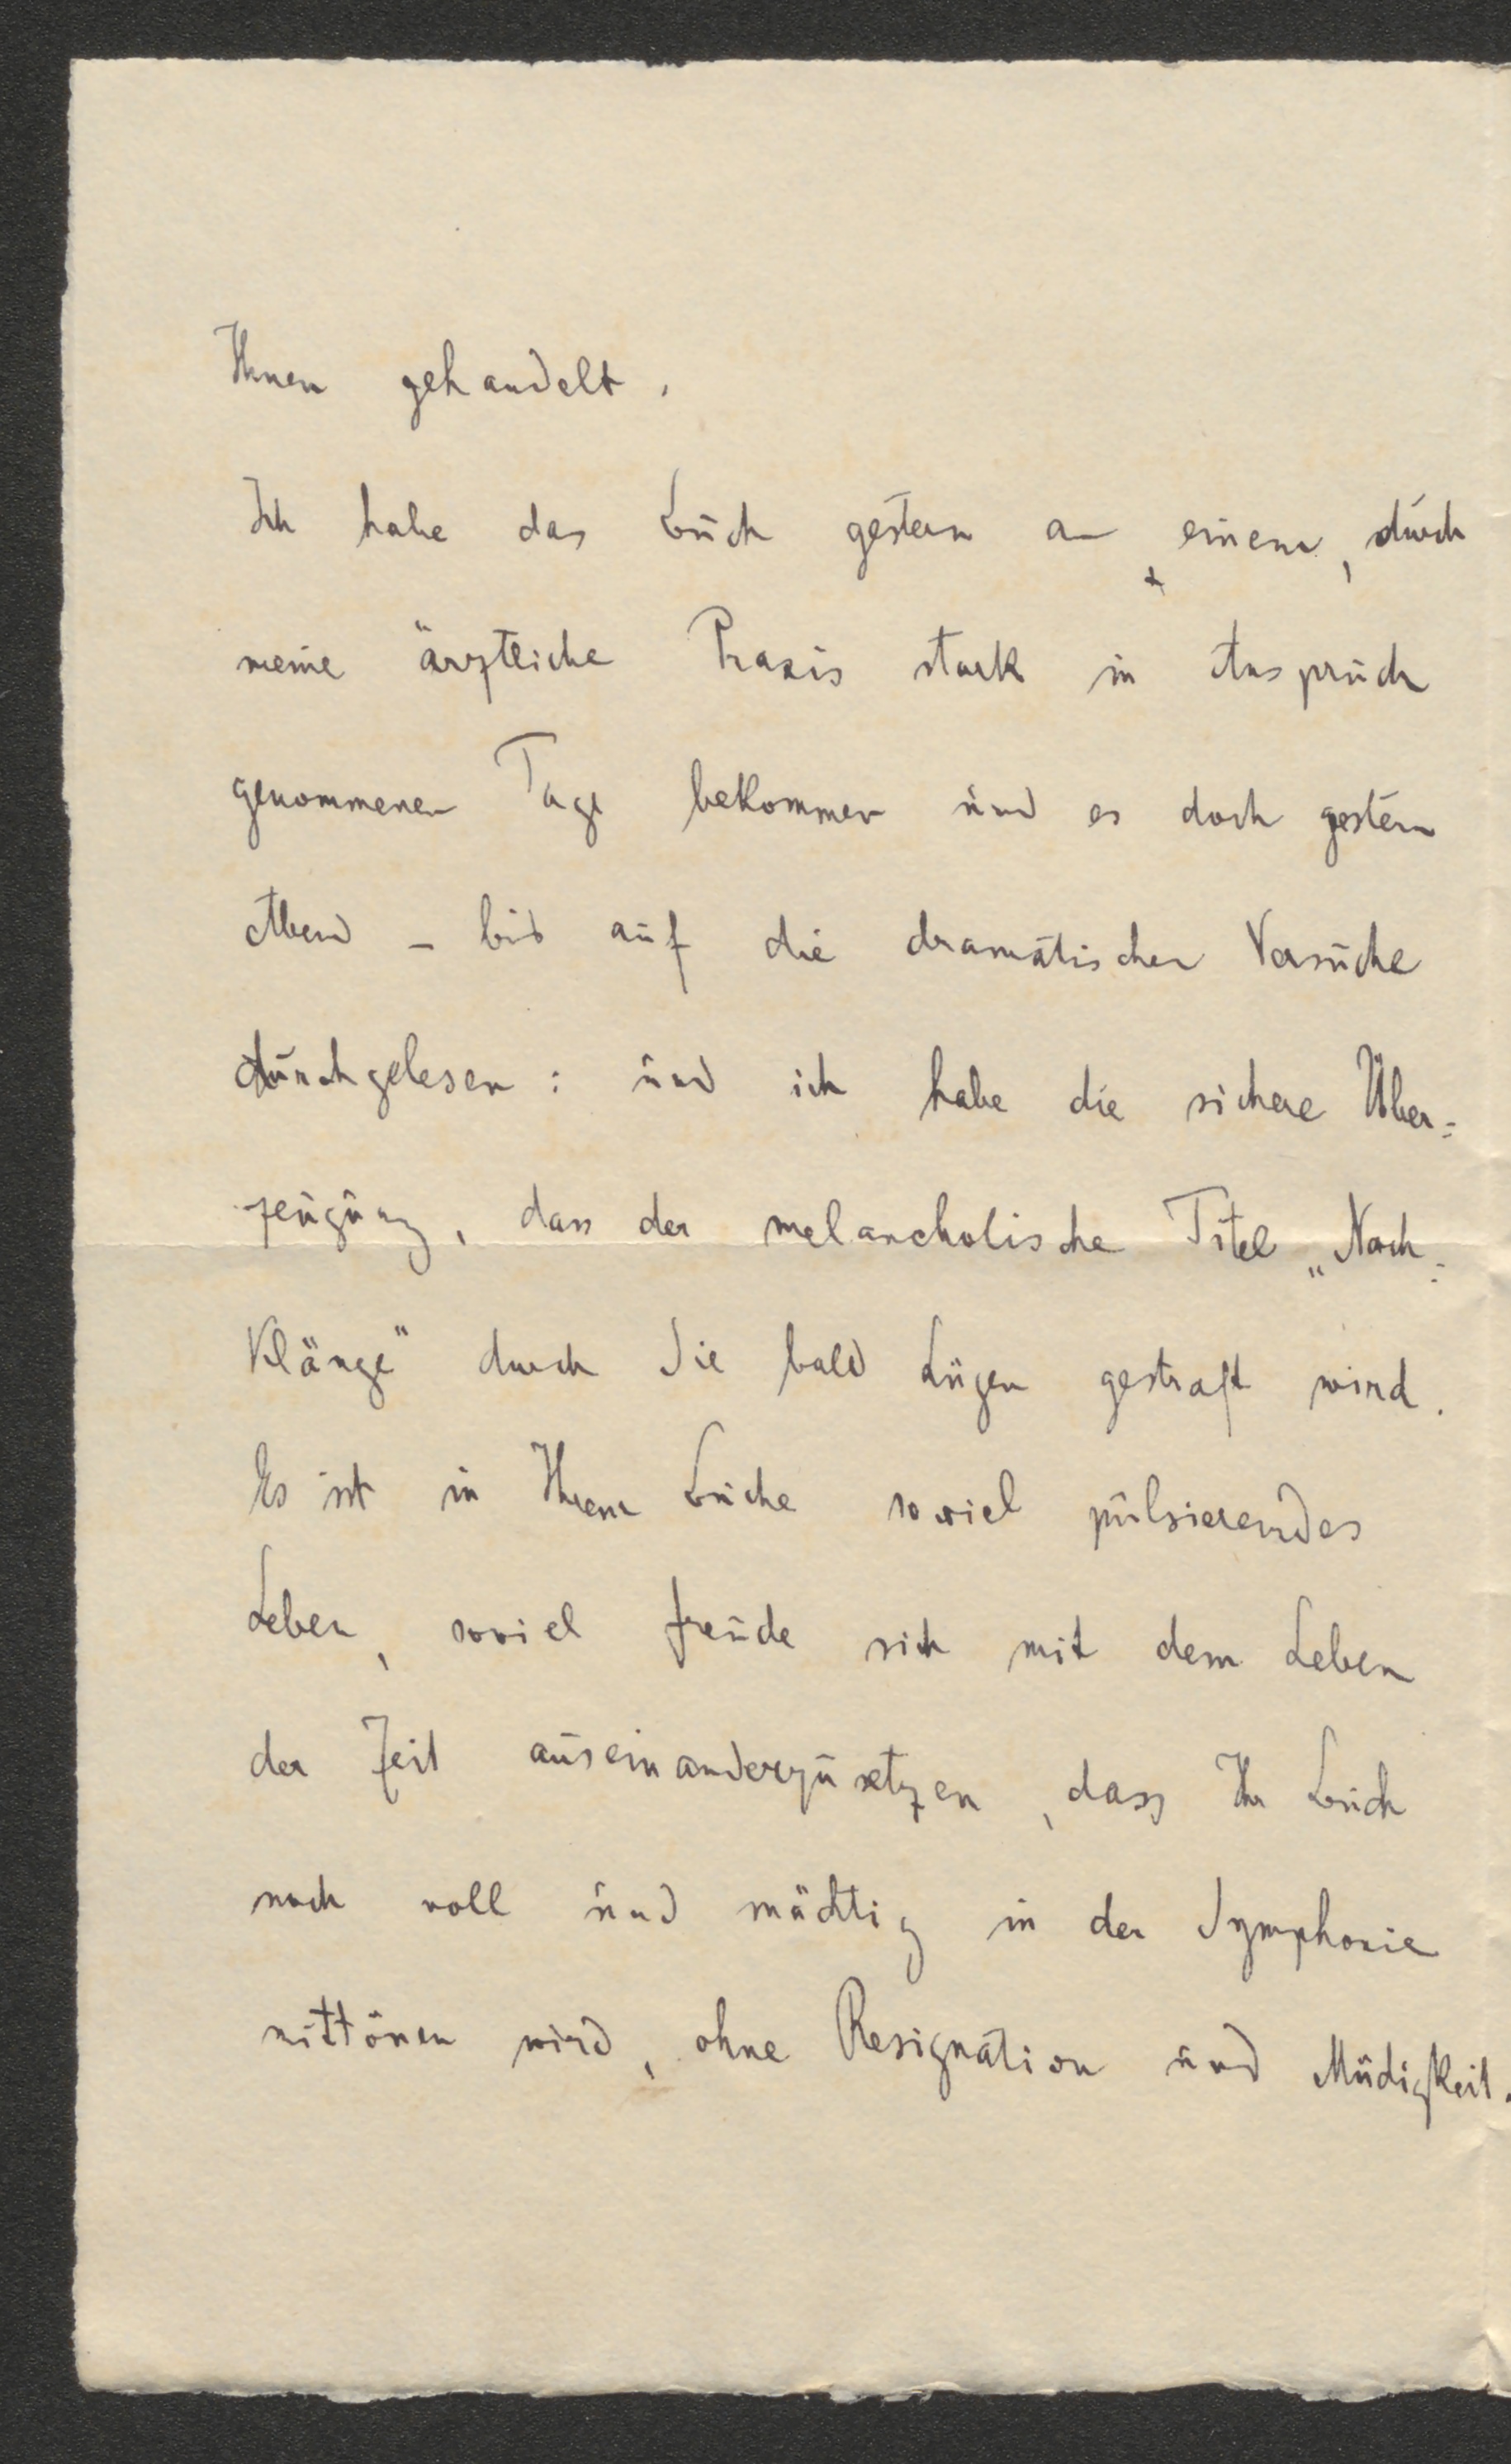 Ihnen gehandelt.
Ich habe das Buch gestern an einem, durch
meine ärztliche Praxis stark in Anspruch
genommenen Tage bekommen und es doch gestern
Abend – bis auf die dramatischen Versuche
durchgelesen: und ich habe die sichere Über=
zeugung, dass der melancholische Titel „Nach=
klänge" durch Sie bald Lügen gestraft wird.
Es ist in Ihrem Buche soviel pulsierendes
Leben, soviel Freude sich mit dem Leben
der Zeit auseinanderzusetzen, dass Ihr Buch
noch voll und mächtig in der Symphonie
mittönen wird, ohne Resignation und Müdigkeit.